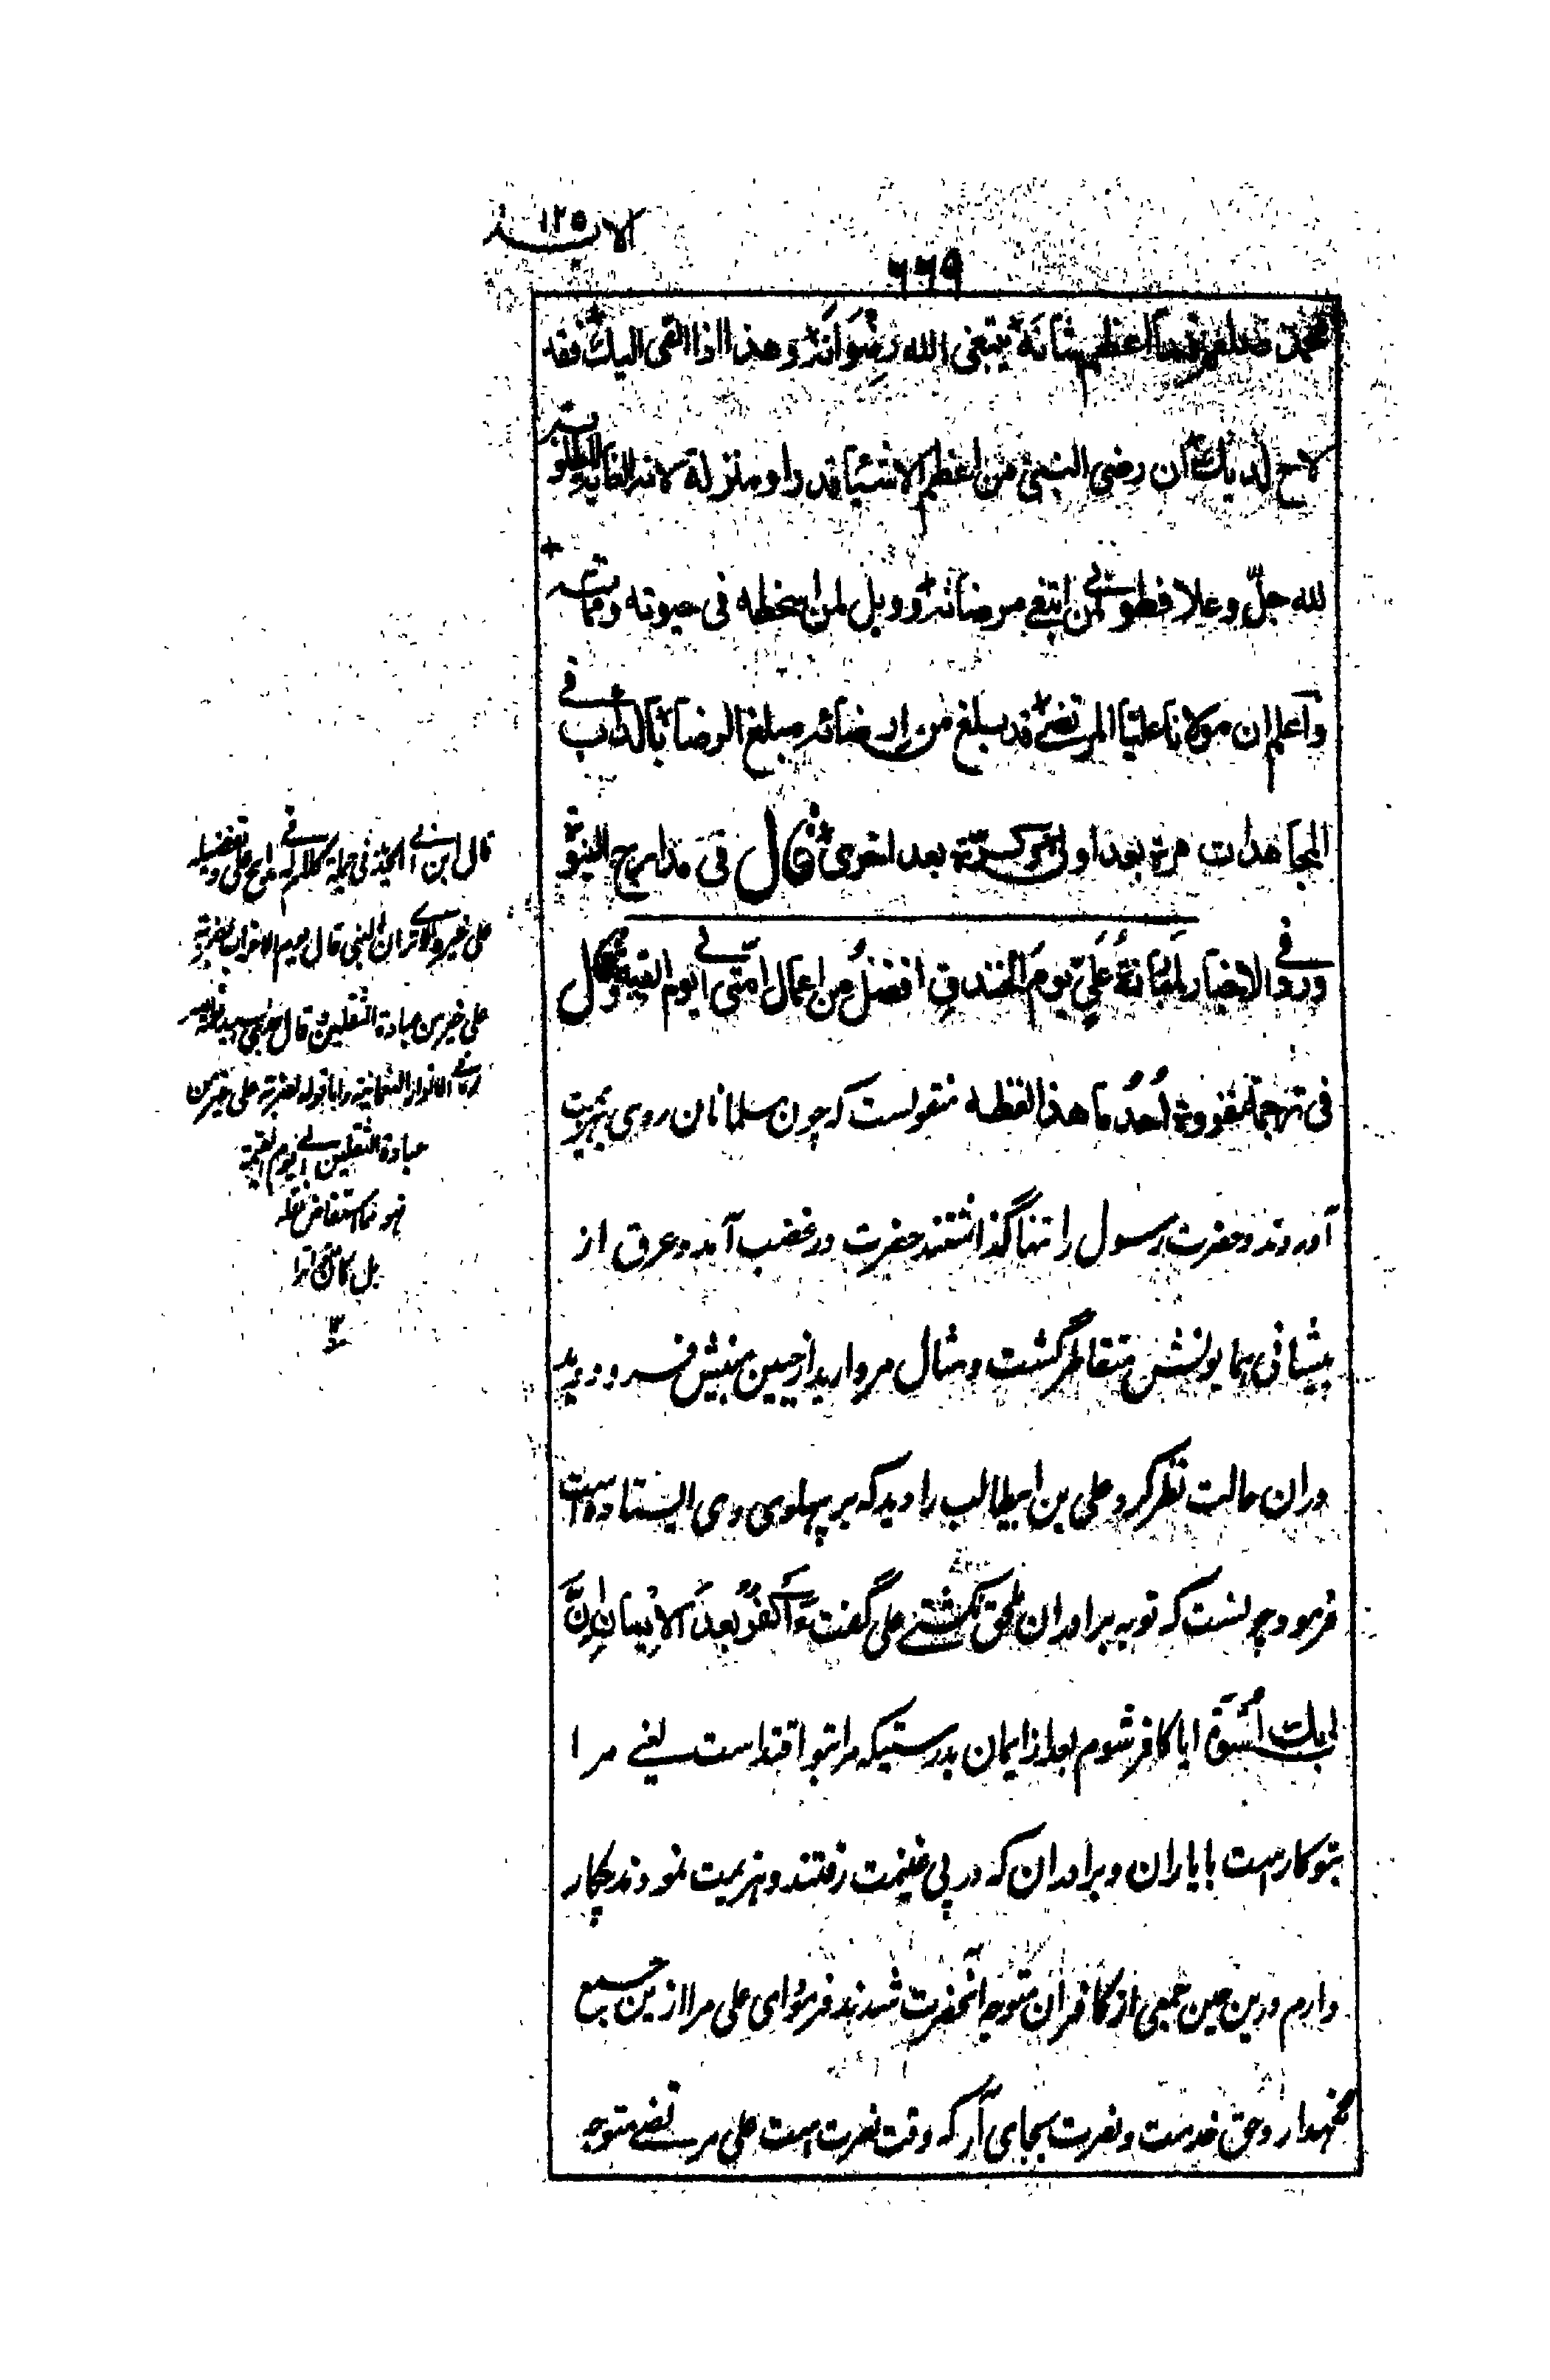 الا ١٢٥
٦٦٩
محمد صلعم ما اعظم شانه يبتغى الله رضوانه وهذا اذا القى اليك فقد
لاح لديك ان رضى النبي من اعظم الاشياء قدرا ومنزلة لانه الغاية
لله جلّ وعلا فطوبى لمن ابتغى مرضاته وويل لمن اسخطه فى حيوته ومماته
واعلم ان مولانا عليّا المرتضى قد بلغ من ارضائه مبلغ الرضا بالداب فى
المجاهدات مرة بعد اولى وكرّة بعد اخرى قال فى مدارج النبوة
ورد فى الاخبار لمبارزة علي يوم الخندق افضل من اعمال امّتى الى يوم القيمة وقال
فى ترجمة غزوة اُحُد ما هذا لفظه منقولست كه چون مسلمانان روى بهزيمت
آوردند وحضرت رسول را تنها گذاشتند حضرت در غضب آمد وعرق از
پيشانى همايونش متقاطر گشت ومثال مرواريد از جبين مبينش فرو دويد
دران حالت نظر كرد على بن ابيطالب را ديد كه بر پهلوى وى ايستاده است
فرمود چونست كه تو به برادران ملحق نگشتى على گفت ءَاَكفرُ بعد الايمان اِنَّ
لى بك اُسوَة ايا كافر شوم بعد از ايمان بدرستيكه مرا بتو اقتداست يعنى مرا
بتو كار است با ياران وبرادران كه در پى غنيمت رفتند وهزيمت نمودند چكار
دارم درين حين جمعى از كافران متوجه آنحضرت شدند فرمود اى على مرا ازين جمع
نگهدار وحق خدمت ونصرت بجاى آر كه وقت نصرت است على مرتضى متوجه
قال ابن ابى الحديد فى جملة كلام له فى مدايح على وتفضيله
على غيره ان النبي قال يوم الاحزاب لضربة
على خير من عبادة الثقلين وقال
فى الانوار النعمانية واما قوله لضربة على خير من
عبادة الثقلين الى يوم القيمة
فهو مما استفاض نقله
بل كان متواترا
١٢